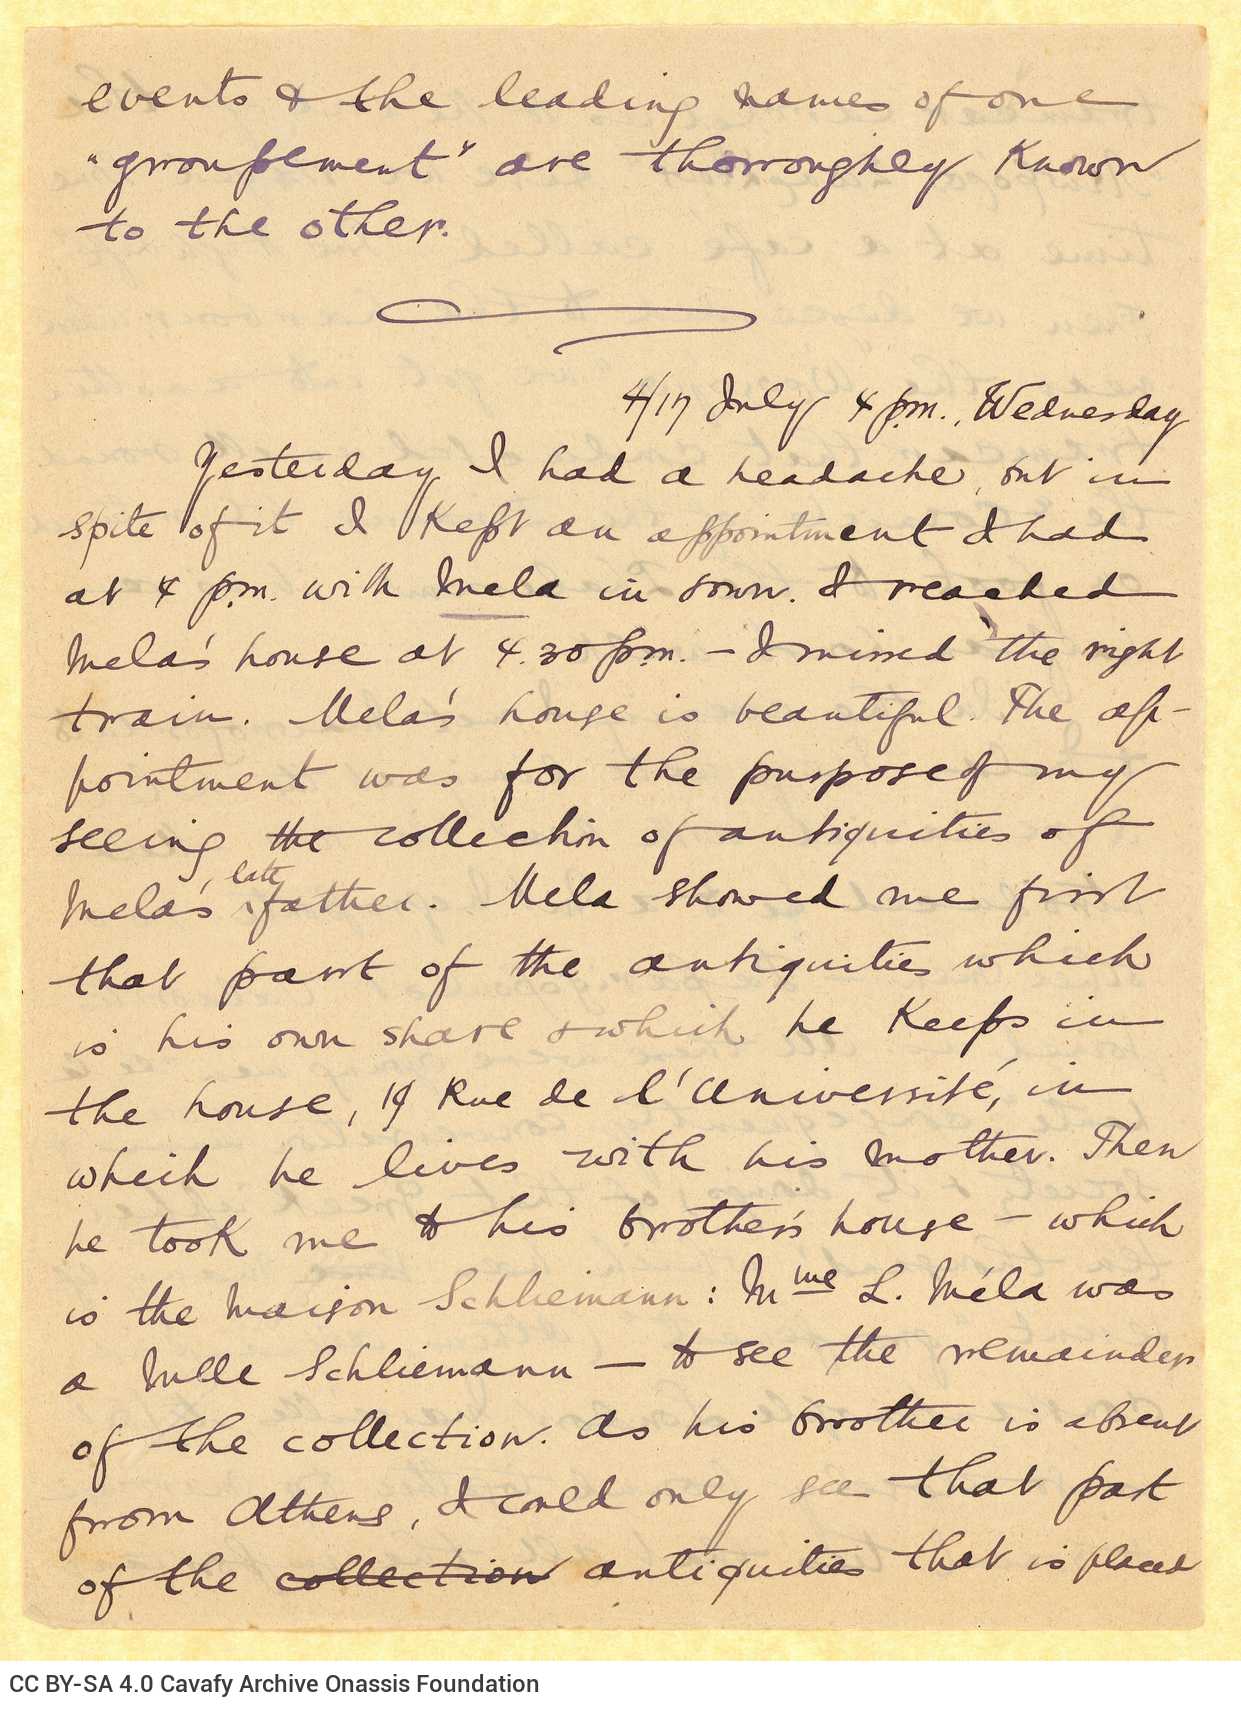 events & the leading names of one
"grroupement" are thorroughley known
to the other.
4/17 July 4 p.m., Wednesday
Yesterday I had a headache, but in
spite of it I kept an appointment I had
at 4 p.m. with Mela in town. I reached
Mela's house at 4.30 p.m. – I missed the right
train. Mela's house is beautiful. The ap-
pointment was for the purpose of my
seeing the collection of antiquities of
Mela's late father. Mela showed me first
that part of the antiquities which
is his own share & which he keeps in
the house, 19 Rue de l'Université, in
which he lives with his mother. Then
he took me to his brother's house – which
is the maison Schliemann: Mme L. Méla was
a Mlle Schliemann – to see the remainder
of the collection. As his brother is absent
from Athens, I could only see that part
of the collection antiquities that is placed
CC BY-SA 4.0 Cavafy Archive Onassis Foundation